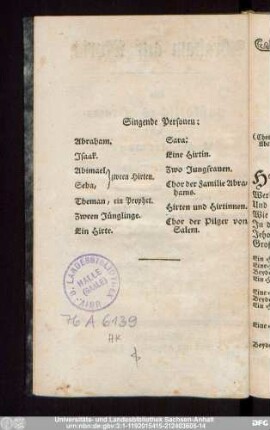 Singende Personen:
Abraham.
Isaak.
Abimael,
Seba,
zween Hirten.
Theman, ein Prophet.
Zween Jünglinge.
Ein Hirte.
Sara:
Eine Hirtin.
Zwo Jungfrauen.
Chor der Familie Abra-
hams.
Hirten und Hirtinnen.
Chor der Pilger von
Salem.
HALLE
(SAALE)
76 A 6139
AK
Universitäts- und Landesbibliothek Sachsen-Anhalt
urn:nbn:de:gbv:3:1-1192015415-212403606-14
DFG